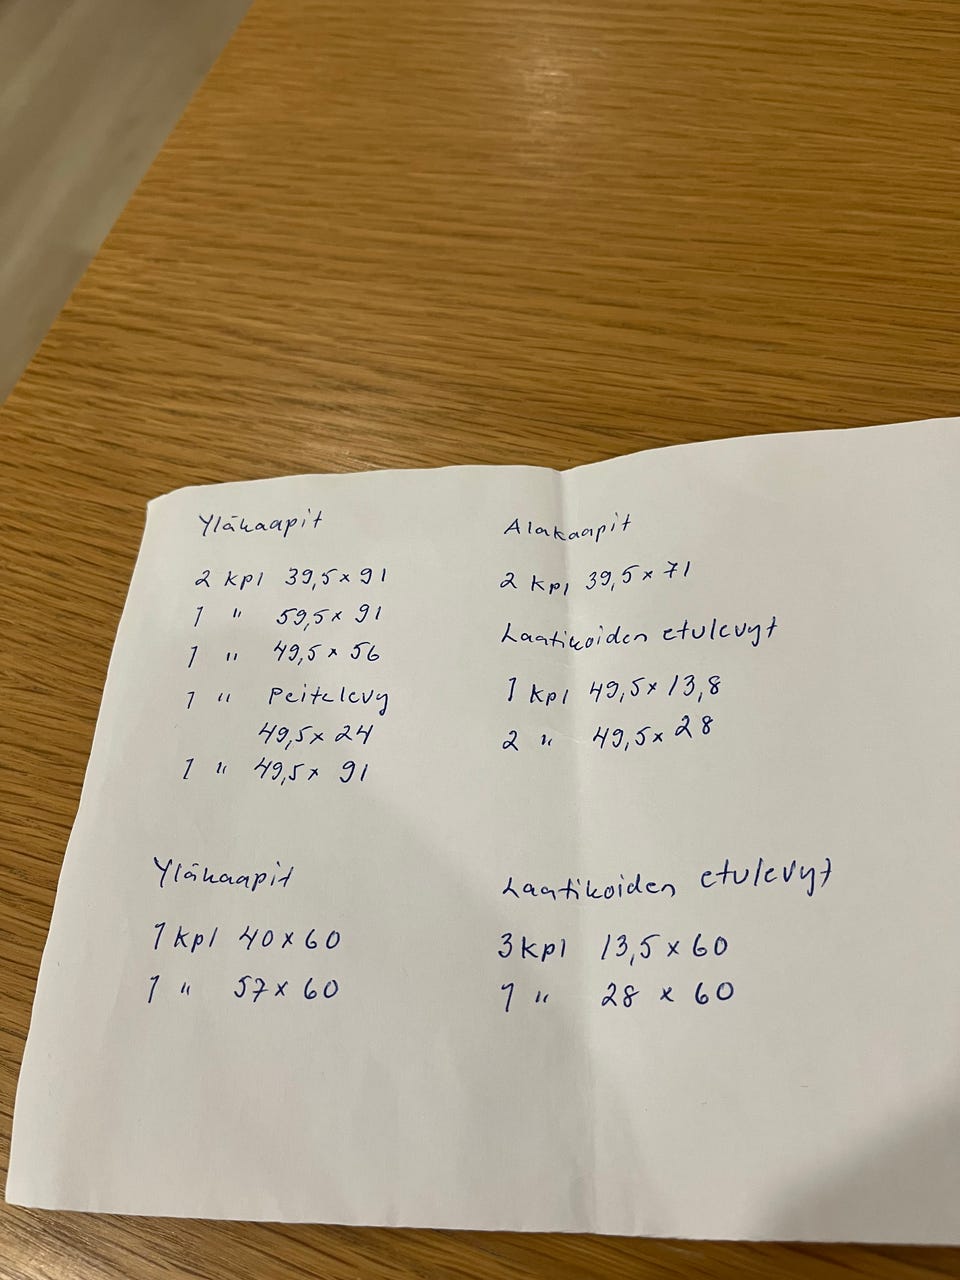 Yläkaapit
2 kpl 39,5 x 91
1 " 59,5 x 91
1 " 49,5 x 56
1 " Peitelevy
49,5 x 24
1 " 49,5 x 91
Alakaapit
2 kpl 39,5 x 71
Laatikoiden etulevyt
1 kpl 49,5 x 13,8
2 " 49,5 x 28
Yläkaapit
1 kpl 40 x 60
1 " 57 x 60
Laatikoiden etulevyt
3 kpl 13,5 x 60
1 " 28 x 60